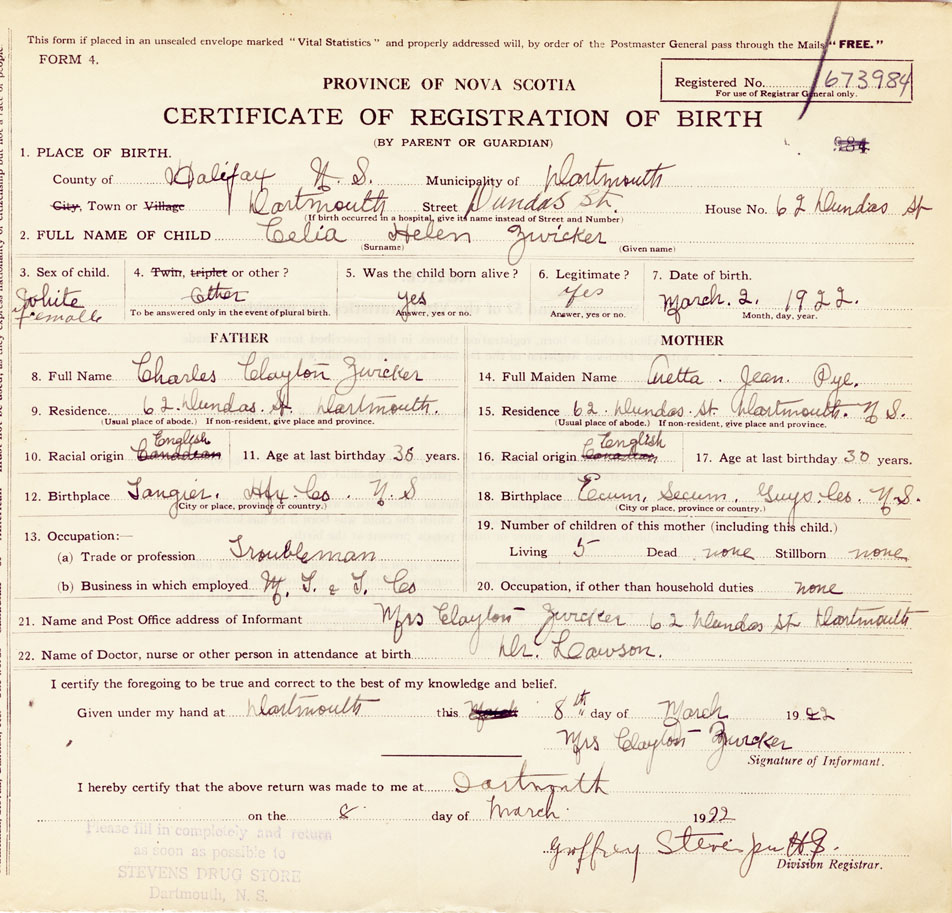 This form if placed in an unsealed envelope marked "Vital Statistics" and properly addressed will, by order of the Postmaster General pass through the Mails "FREE."
FORM 4.
PROVINCE OF NOVA SCOTIA
Registered No. 673984
For use of Registrar General only.
CERTIFICATE OF REGISTRATION OF BIRTH
(BY PARENT OR GUARDIAN)
1. PLACE OF BIRTH.
County of Halifax N. S. Municipality of Dartmouth
City, Town or Village Dartmouth Street Dundas St. House No. 62 Dundas St
(If birth occurred in a hospital, give its name instead of Street and Number)
2. FULL NAME OF CHILD Celia Helen Zwicker
(Surname) (Given name)
3. Sex of child. 4. Twin, triplet or other? 5. Was the child born alive? 6. Legitimate? 7. Date of birth.
White Other yes Yes March. 2. 1922.
Female To be answered only in the event of plural birth. Answer, yes or no. Answer, yes or no. Month, day, year.
FATHER MOTHER
8. Full Name Charles Clayton Zwicker 14. Full Maiden Name Aretta. Jean. Pye.
9. Residence. 62. Dundas. St. Dartmouth. 15. Residence 62. Dundas. St Dartmouth. N S.
(Usual place of abode.) If non-resident, give place and province. (Usual place of abode.) If non-resident, give place and province.
English English
10. Racial origin Canadian 11. Age at last birthday years. 16. Racial origin Canadian 17. Age at last birthday 30 years.
12. Birthplace Tangier. Hfx-Co. N. S 18. Birthplace Ecum, Secum, Guys-Co. N. S.
(City or place, province or country.) (City or place, province or country.)
13. Occupation:— 19. Number of children of this mother (including this child.)
(a) Trade or profession Troubleman Living 5 Dead none Stillborn none
(b) Business in which employed M. T. & T. Co 20. Occupation, if other than household duties none
21. Name and Post Office address of Informant Mrs Clayton Zwicker 62 Dundas St Dartmouth
22. Name of Doctor, nurse or other person in attendance at birth Dr. Lawson.
I certify the foregoing to be true and correct to the best of my knowledge and belief.
Given under my hand at Dartmouth this March 8th day of March 1922
Mrs Clayton Zwicker
Signature of Informant.
I hereby certify that the above return was made to me at Dartmouth
on the 8 day of March 1922
Geoffrey Stevens
Division Registrar.
Please fill in completely and return
as soon as possible to
STEVENS DRUG STORE
Dartmouth, N. S.